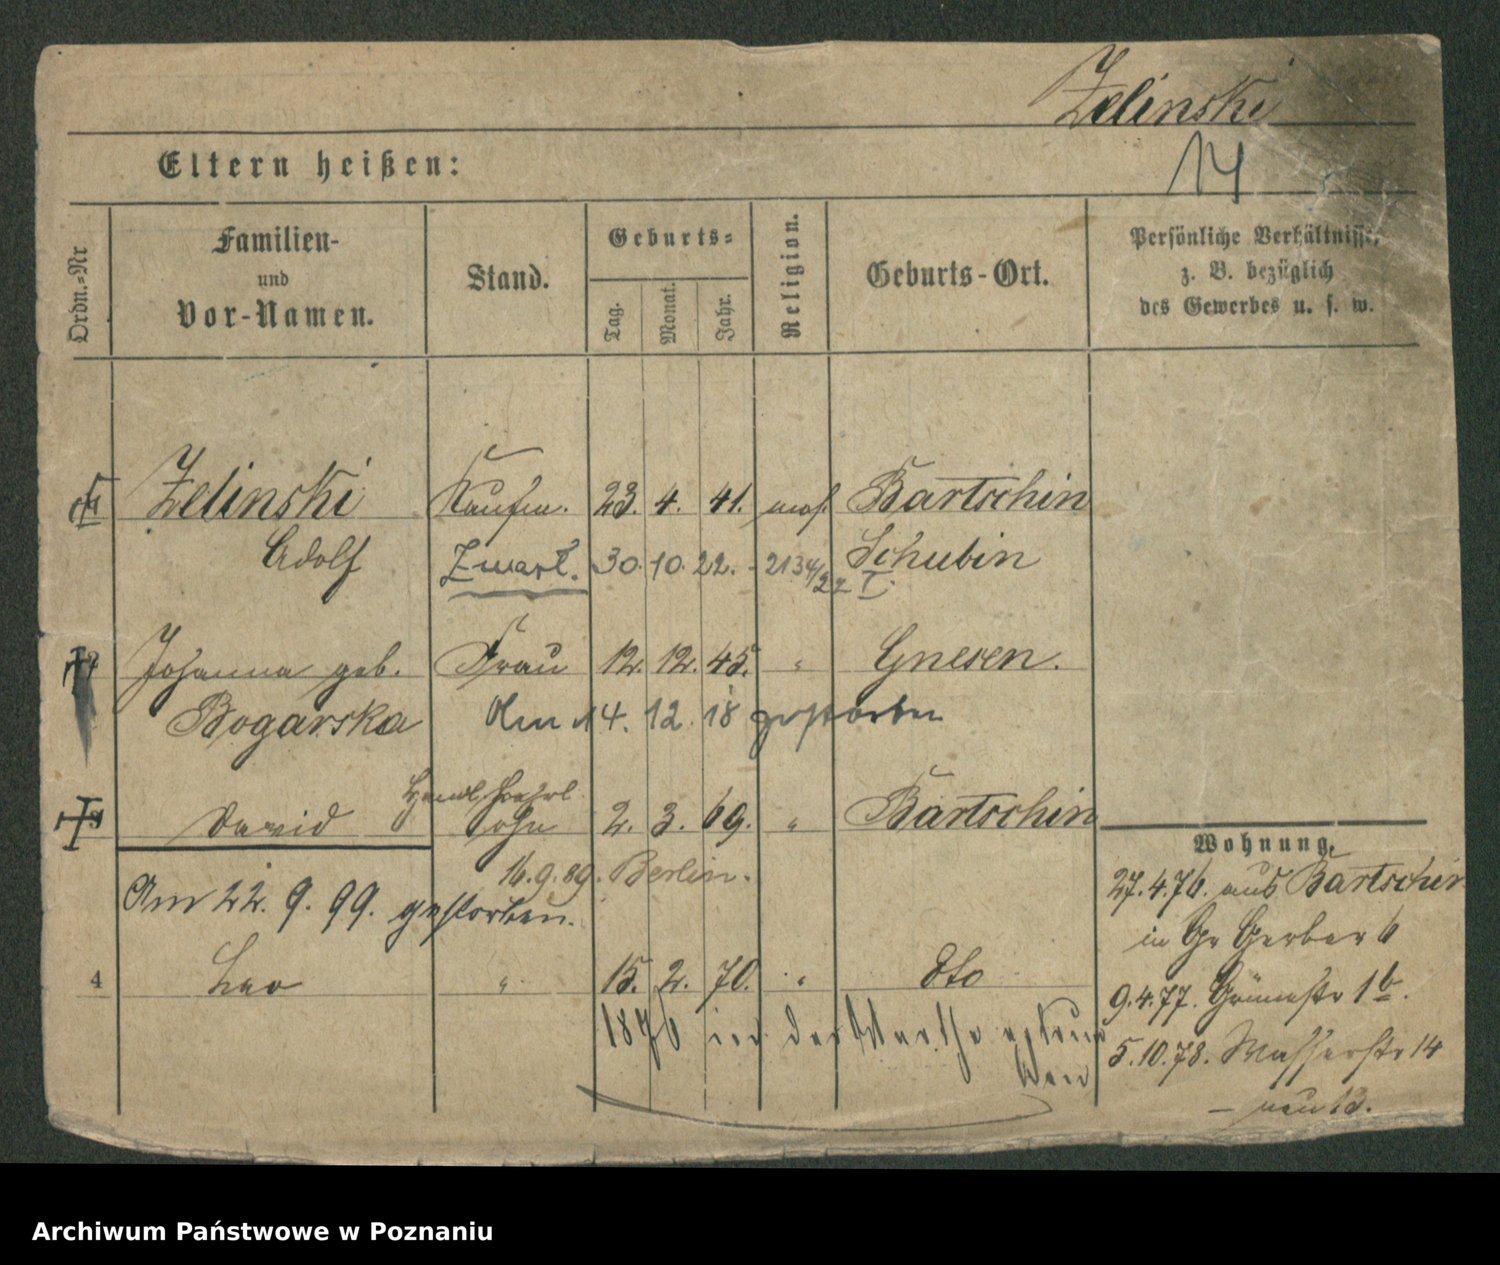 Zelinski
14
Eltern heißen:
Ordn.-Nr
Familien-
und
Vor-Namen.
Stand.
Geburts-
Tag.
Monat.
Jahr.
Religion.
Geburts-Ort.
Persönliche Verhältnisse,
z. B. bezüglich
des Gewerbes u. s. w.
Zelinski Kaufm. 23. 4. 41. mos. Bartschin
Adolf 30. 10. 22. 2134/22 Schubin
I.
Johanna geb. Frau 12. 12. 45. " Gnesen.
Bogarska Am 14. 12. 18 gestorben
David Sohn 2. 3. 69. " Bartschin
16. 9. 89. Berlin.
Am 22. 9. 99. gestorben.
4 Leo " 15. 2. 70. " dto
1876 in der Warthe ertrun
ken
Wohnung.
27. 4. 76. aus Bartschin
in Gr Gerber 6
9. 4. 77. 1b.
5. 10. 78. Wasserstr 14
— neu 13.
Archiwum Państwowe w Poznaniu